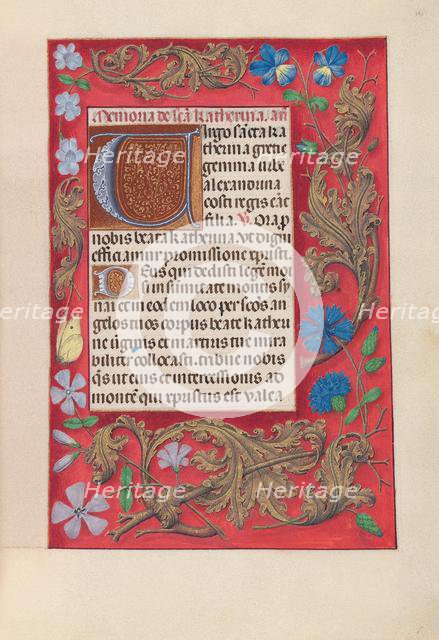 Memoria de scā Katherina. añ
Virgo sancta ka
therina grecie
gemma urbe
alexandrina
costi regis erat
filia. V. Ora p
nobis beata katherina Ut digni
efficiamur promissione xpristi.
Deus qui dedisti legem moi
si in summitate montis sy
nai et in eodem loco per scōs an
gelos tuos corpus beate katheri
ne virginis et martiris tue mira
biliter collocasti. tribue nobis
qs ut eius et intercessionis ad
montem qui xpristus est valea
Heritage Heritage
Heritage Heritage
Heritage Heritage
Heritage Heritage